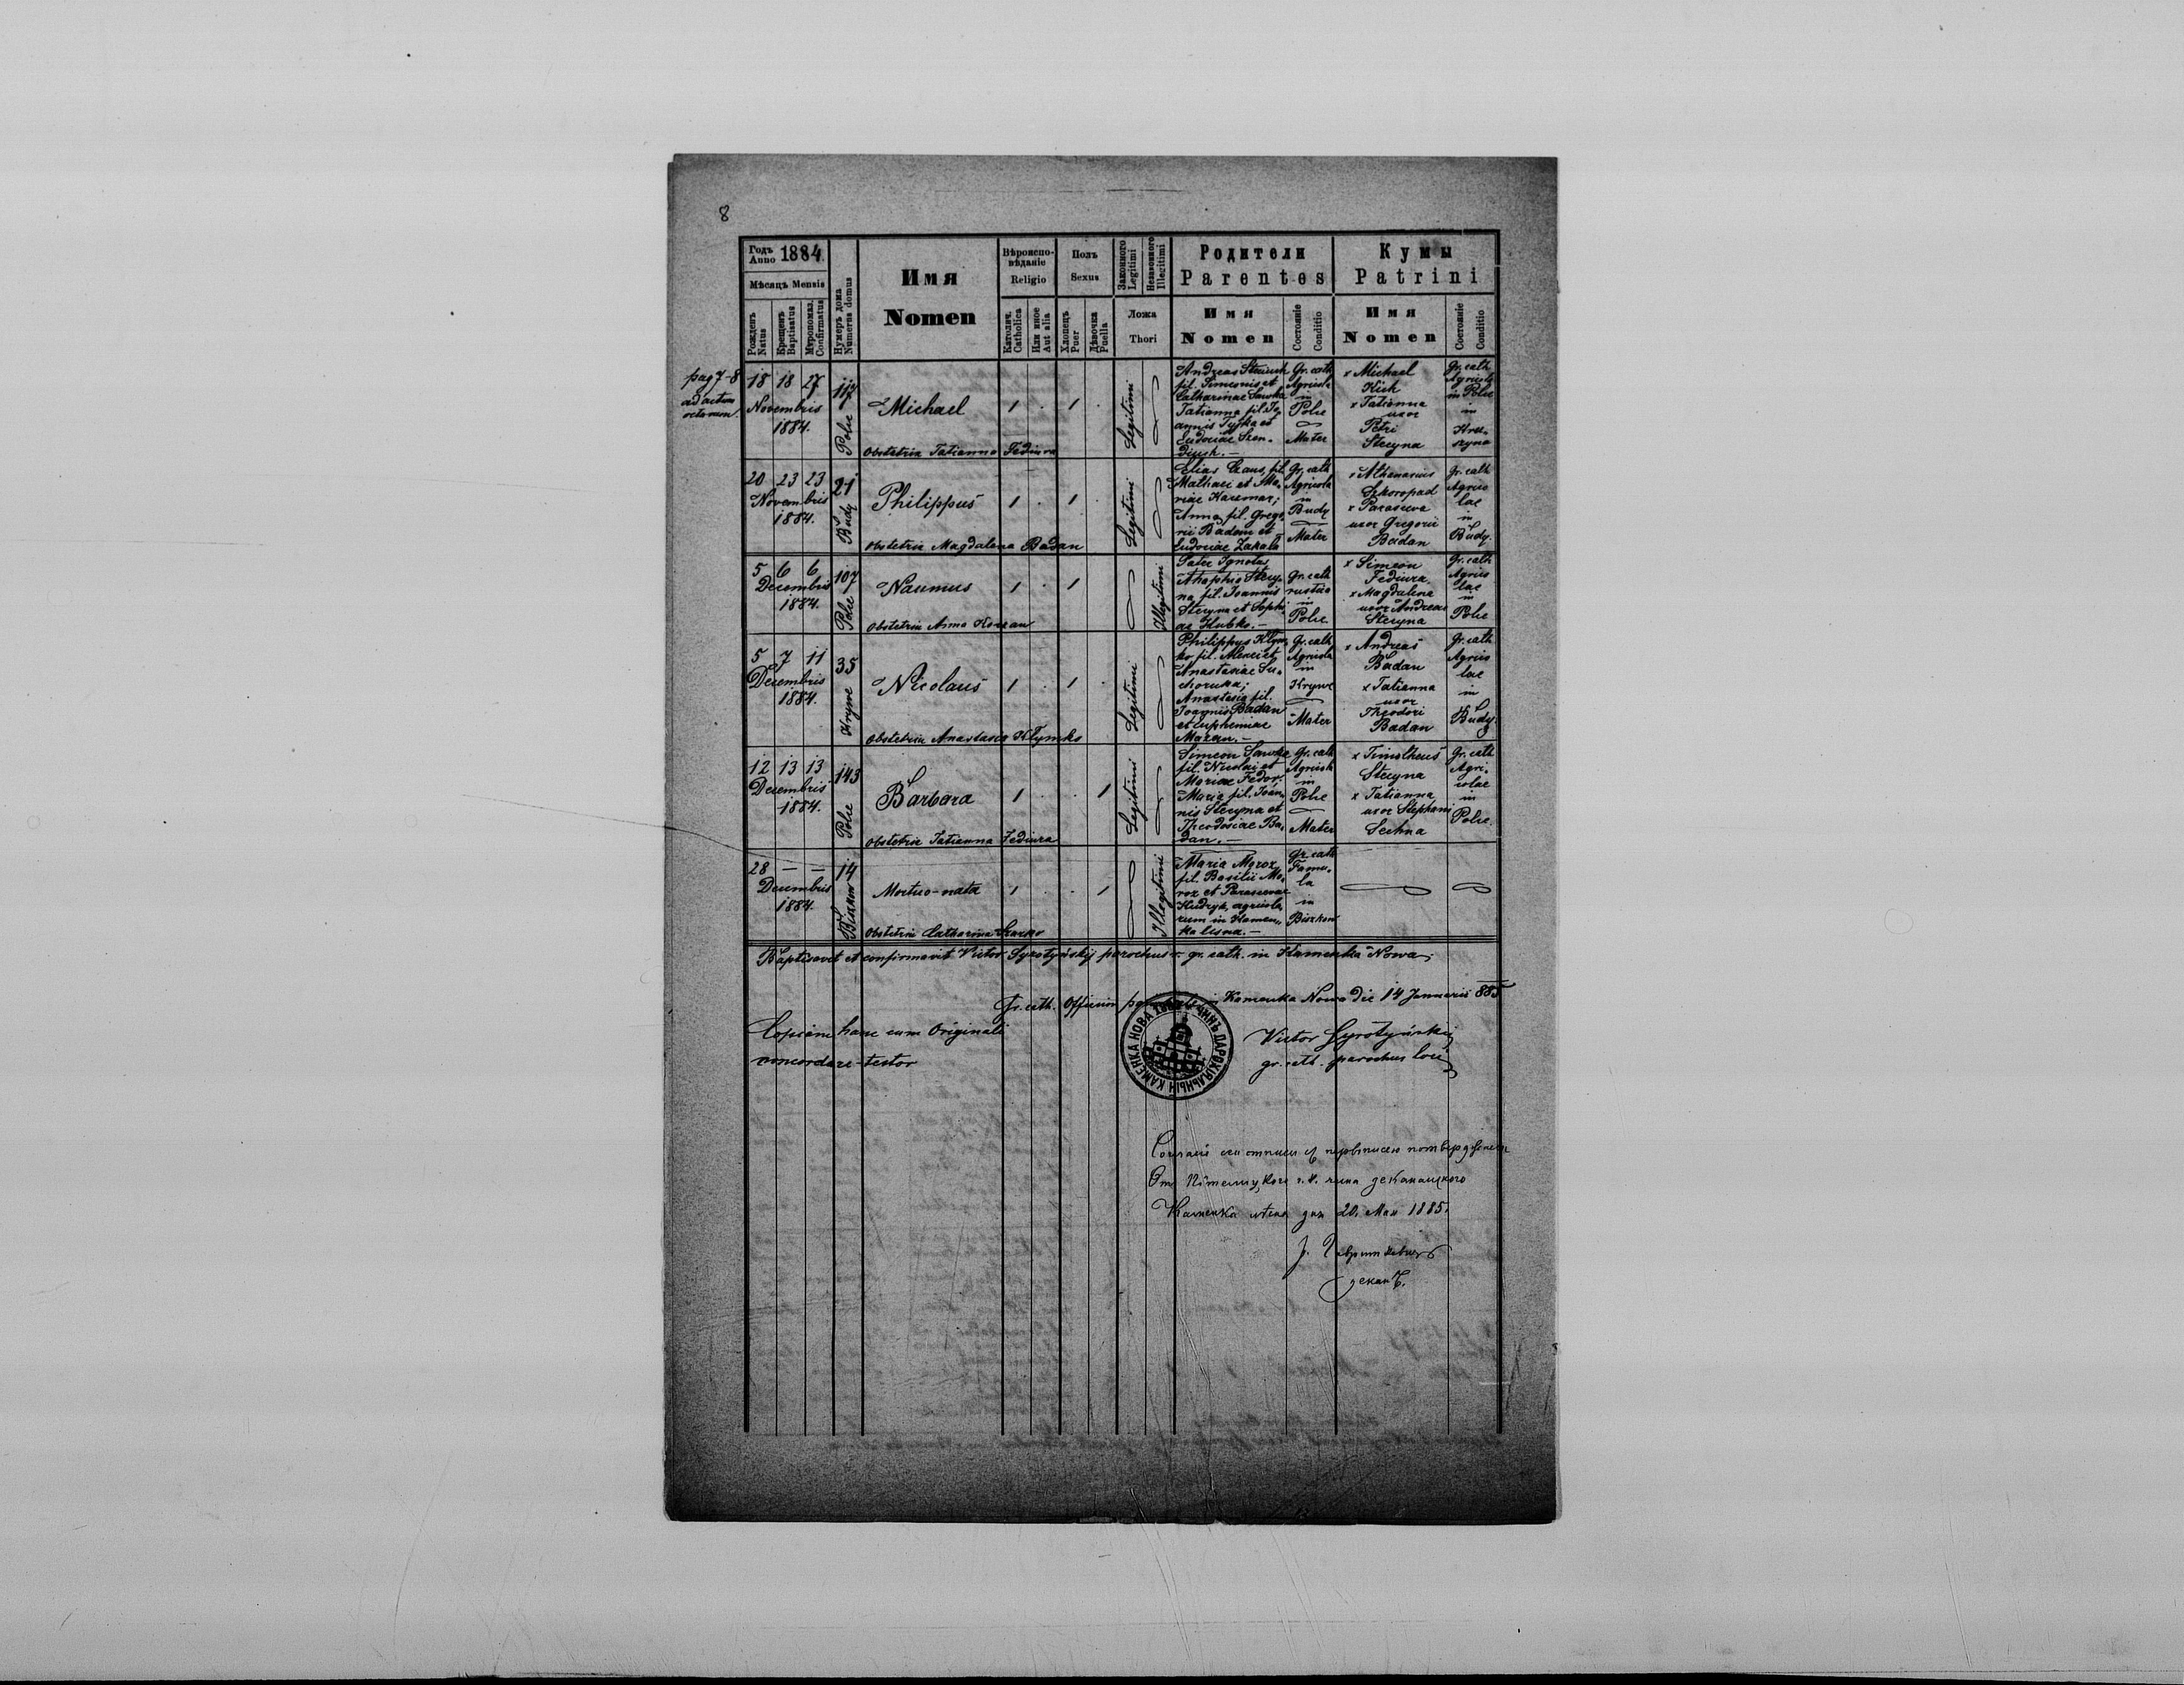 8
Годъ Anno 1884.
Мѣсяцъ Mensis
Рожденъ Natus
Крещенъ Baptisatus
Мѵропомаз. Confirmatus
Нумеръ дома Numerus domus
Имя
Nomen
Вѣроиспо-
вѣданіе
Religio
Католич. Catholica
Или иное Aut alia
Полъ
Sexus
Хлопецъ Puer
Дѣвочка Puella
Законного Legitimi
Незаконного Illegitimi
Ложа
Thori
Родители
Parentes
Имя
Nomen
Состояніе Conditio
Кумы
Patrini
Имя
Nomen
Состояніе Conditio
pag 7-8
18 18 27
Novembris
1884.
117
Polie
Michael
Obstetrix Tatianna Fediura
1 . 1 .
Legitimi
Andreas
fil. Simeonis et
Catharinae Sawka
Tatianna fil. Jo
annis Tyska et
Eudociae Sen-
Gr. cath
Agricola
in
Polie
Mater
x Michael
Kich
x Tatianna
uxor
Petri
Steryna
Gr. cath
Agricola
in Polie
in
20 23 23
Novembris
1884.
21
Budy
Philippus
Obstetrix Magdalena Badan
1 . 1 .
Legitimi
Elias fil.
Mathaei et Ma-
riae
Anna fil. Grego
rii Badan et
Eudociae Zakala
Gr. cath
Agricola
in
Budy
Mater
x Athanasius
Skoropad
x Parasceva
uxor Gregorii
Badan
Gr. cath
Agrico
lae
in
Budy.
5 6 6
Decembris
1884.
107
Polie
Naumus
Obstetrix Anna Korzan
1 . 1
Illegitimi
Pater Ignotus
Stery-
na fil. Joannis
Steryna et Sophi
ae Hubko.-
Gr. cath
rustica
in
Polie
x Simeon
Fediura
x Magdalena
uxor Andreae
Steryna
Gr. cath
Agrico
lae
in
Polie
5 7 11
Decembris
1884.
35
Krywe
Nicolaus
Obstetrix Anastasia Klymko
1 . 1 .
Legitimi
Philippus Klym
ko fil. Alexii et
Anastasiae Su-
choruka;
Anastasia fil.
Joannis Badan
et Eupheniae
Mazan.-
Gr. cath
Agricola
in
Krywe
Mater
x Andreas
Badan
x Tatianna
uxor
Theodori
Badan
Gr. cath
Agrico
lae
in
Budy.
12 13 13
Decembris
1884.
143
Polie
Barbara
Obstetrix Tatianna Fediura
1 . . 1
Legitimi
Simeon Sawka
fil. Nicolai et
Mariae Fedor.
Maria fil. Joan-
nis Steryna et
Theodosiae Ba-
dan.-
Gr. cath
Agricola
in
Polie
Mater
x Timotheus
Steryna
x Tatianna
uxor Stephani
Sechna
Gr. cath
Agri-
colae
in
Polie.
28 — —
Decembris
1884.
14
Biszkow
Mortuo-nata
Obstetrix Catharina
1 . . 1
Illegitimi
Maria Moroz
fil. Basilii Mo-
roz et Parascevae
Kudryk, agricola
rum in Kamen-
ka lesna.-
Gr. cath
Famu-
la
in
Biszkow
Baptisavit et confirmavit Victor Syrotyńskij parochus gr. cath. in Kamenka Nowa.
Gr. cath. Officium Kamenka Nowa die 14 Januarii 885
Copiam hanc cum Originali
concordare testor
КАМЕНКА НОВА ЧИНЪ ПАРОХІЯЛЬНЫЙ
Victor Syrotyńskij
gr. cath. parochus loci
деканацкого
Каменка дня 20. Мая 1885.
деканъ.